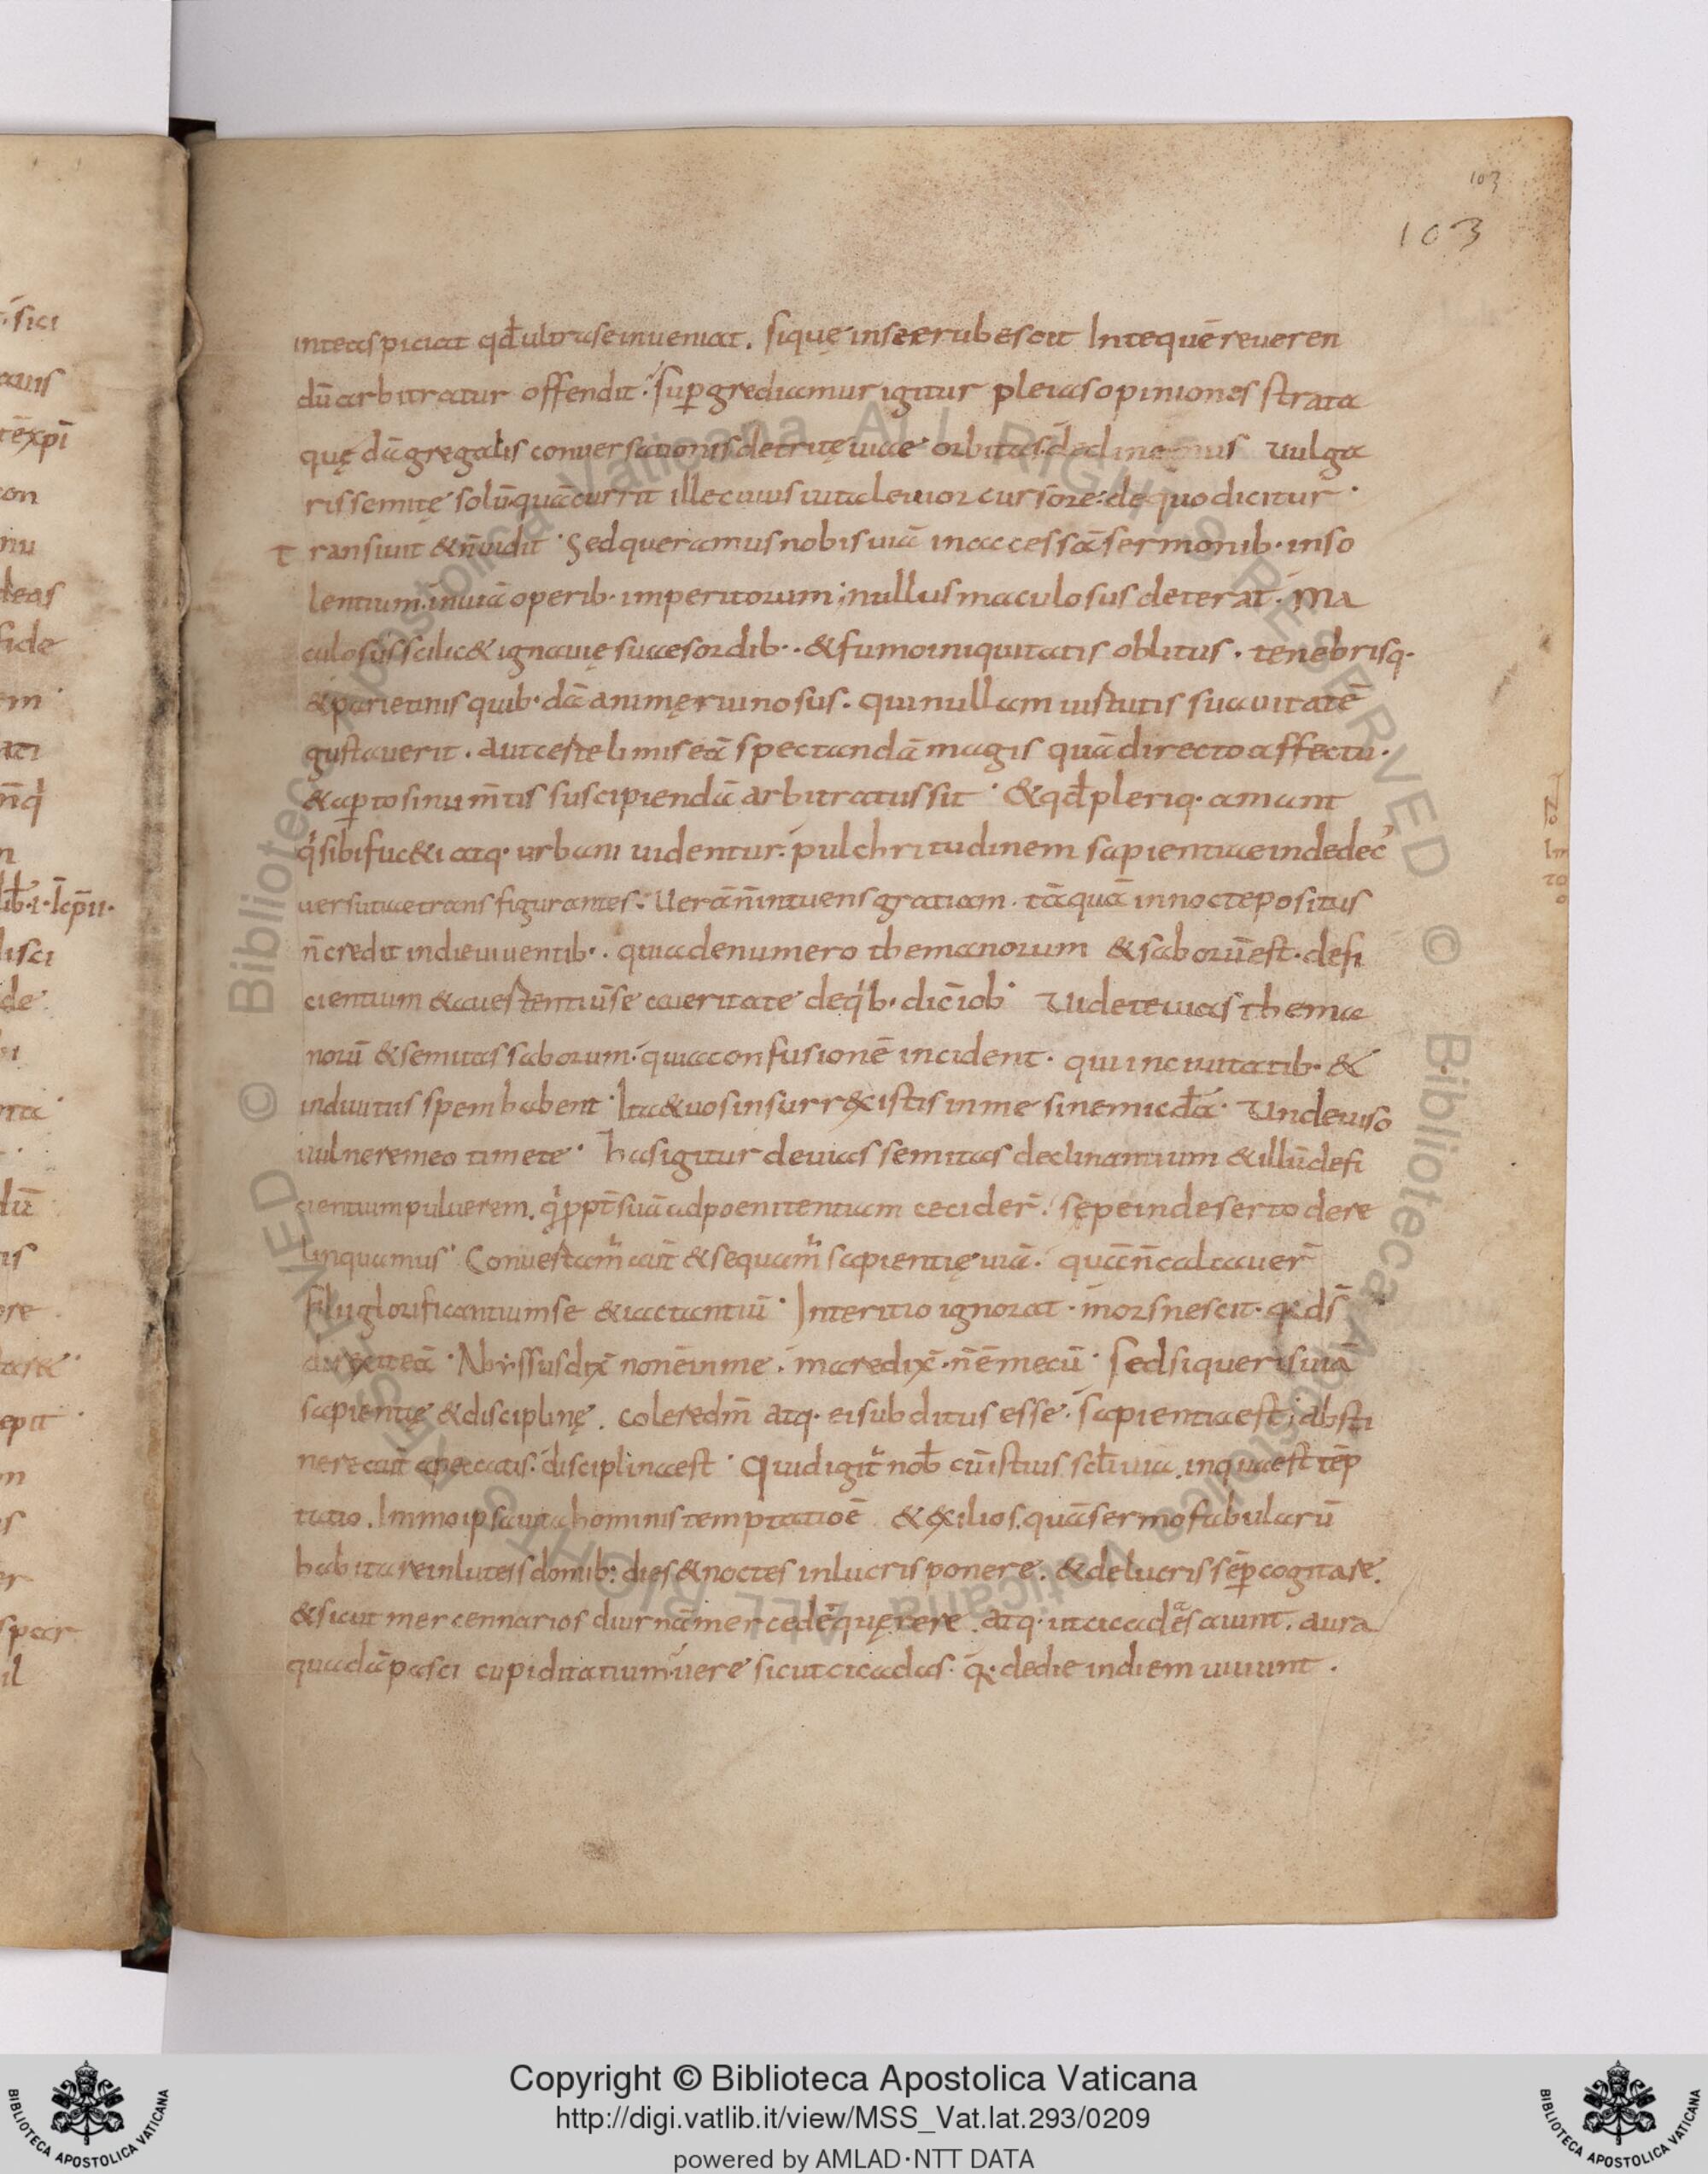 103
103
inteaspiciat qđ ultra se inueniat. si que inse erubescit Intequē reueren
dū arbitratur offendit. sup grediamur igitur pleias opiniones strata
quędā gregalis conuersationis detritę uiae orbitas declinemus uulga
ris semitę solū quā currit ille cuius uita leuior cursore. de quo dicitur
transiuit & ñ uidit Sed queramus nobis uiā inaccessā sermonib· inso
lentium. inuiā operib· imperitorum; nullus maculosus deterat. Ma
culosus scilic& ignauię suae sordib·. & fumo iniquitatis oblitus. tenebrisq·
& parietinis quib·dā animę ruinosus. qui nullam uirtutis suauitatē
gustauerit. aut certe limis eā spectandā magis quā directo affectu.
& apto sinu m̄tis suscipiendā arbitratus sit & qđ pleriq· amant
q sibi fac&i atq· urbani uidentur. pulchritudinem sapientiae indedec
uersutiae transfigurantes. Uerā ñ intuens gratiam. tāquā in nocte positus
ñ credit indie uiuentib·. quia de numero themanorum & saborū est. defi
cientium & auertentiū se a ueritate deqb· dic iob Uidete uias thema
norū & semitas saborum. quia confusionē incident. qui in ciuitatib· &
in diuitiis spem habent Ita & uos insurrexistis in me sine mic̄dā. Unde uiso
uulnere meo timete. has igitur deuias semitas declinantium & illū defi
cientium puluerem. q ppt suā ad poenitentiam cecider̄. sepe in deserto dere
linquamus Conuertam aūt & sequam sapientię uiā. quā ñ calcauer̄
filii glorificantium se & iactantiū Interitio ignorat. mors nescit. q· ds̄
direxit eā Abyssus dix̄ non ē in me. mare dix̄. ñ ē mecū sed si queris uiā
sapientię & disciplinę. colere dm̄ atq· ei subditus esse. sapientia est; absti
nere aūt apeccatis. disciplina est Quid igit nob̄ cū istius sc̄li uia. in qua est tēp
tatio. Immo ipsa uita hominis temptatio ē & exilios. quā sermo fabularū
habitare in luteis domib·. dies & noctes in lucris ponere. & de lucris sēp cogitare.
& sicut mercennarios diurnā mercedē quęrere. atq· ut cicades aiunt. aura
quadā pasci cupiditatium. uere sicut cicadas. q· de die in diem uiuunt.
Copyright © Biblioteca Apostolica Vaticana
http://digi.vatlib.it/view/MSS_Vat.lat.293/0209
powered by AMLAD·NTT DATA